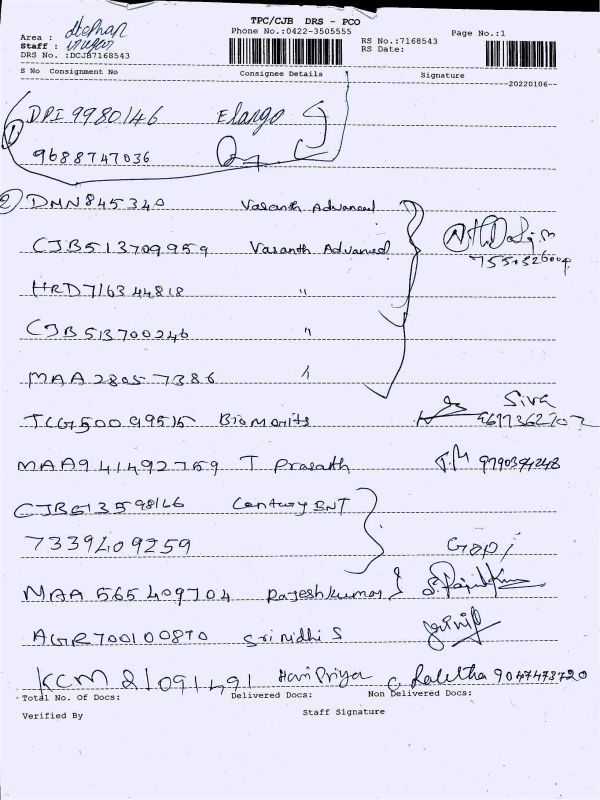 TPC/CJB DRS - PCO
Area : Stephan
Phone No.:0422-3505555
Page No.:1
Staff :
RS No.:7168543
DRS No. :DCJB7168543
RS Date:
S No Consignment No Consignee Details Signature
20220106
1 DPI 9980146 Elango
9688747036
2 DMN845340 Vasanth Advanced
CJB513709959 Vasanth Advanced
HRD716344818 "
CJB513700246 "
MAA 28057386 "
Siva
TCG50099515 Biomorits
MAA941492759 T Prasath 9790394248
CJB613598146 Century ENT
7339409259 Gopi
MAA 565409704 Rajeshkumar
AGR700100870 Sri nidhi S
KCM 81091491 Hari Priya C. Lalitha 9047473720
Total No. Of Docs: Delivered Docs: Non Delivered Docs:
Verified By Staff Signature